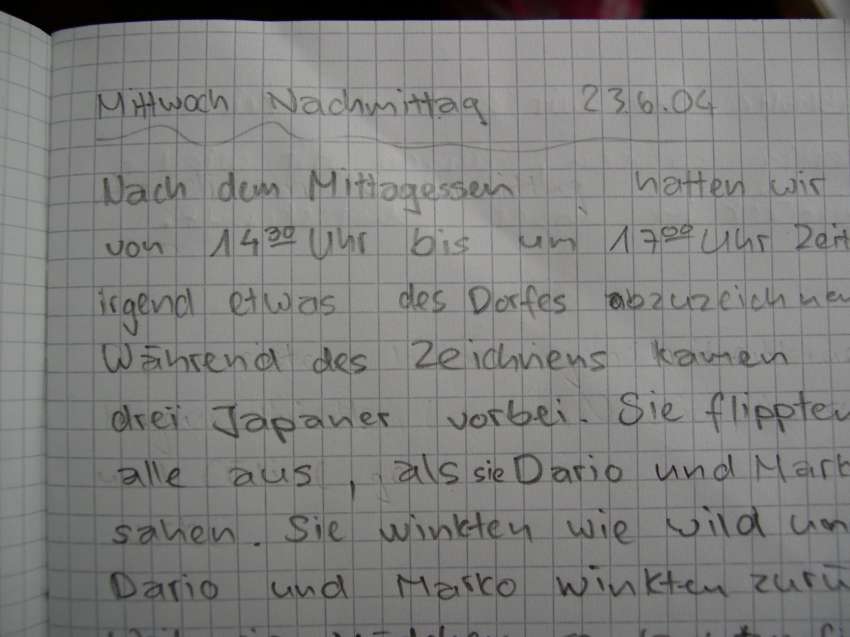 Mittwoch Nachmittag 23.6.04
Nach dem Mittagessen hatten wir
von 14³⁰ Uhr bis um 17⁰⁰ Uhr Zeit
irgend etwas des Dorfes abzuzeichne
Während des Zeichnens kamen
drei Japaner vorbei. Sie flippten
alle aus, als sie Dario und Mark
sahen. Sie winkten wie wild un
Dario und Marko winkten zurü